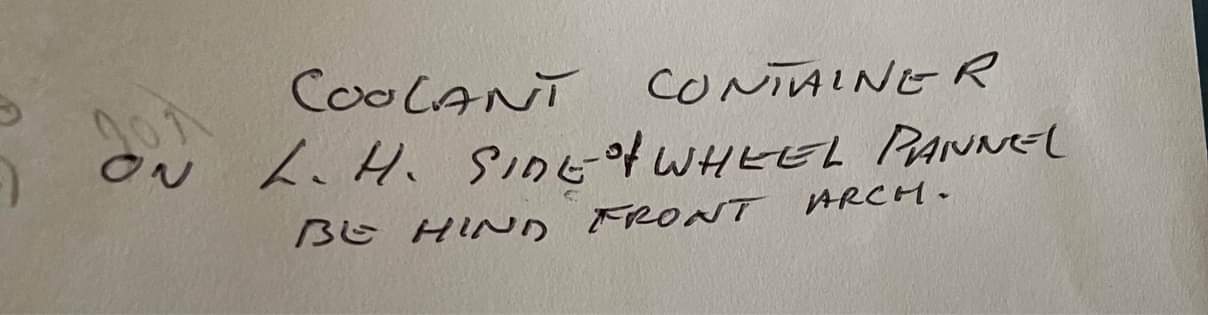 COOLANT CONTAINER
ON L.H. SIDE of WHEEL PANNEL
BE HIND FRONT ARCH.